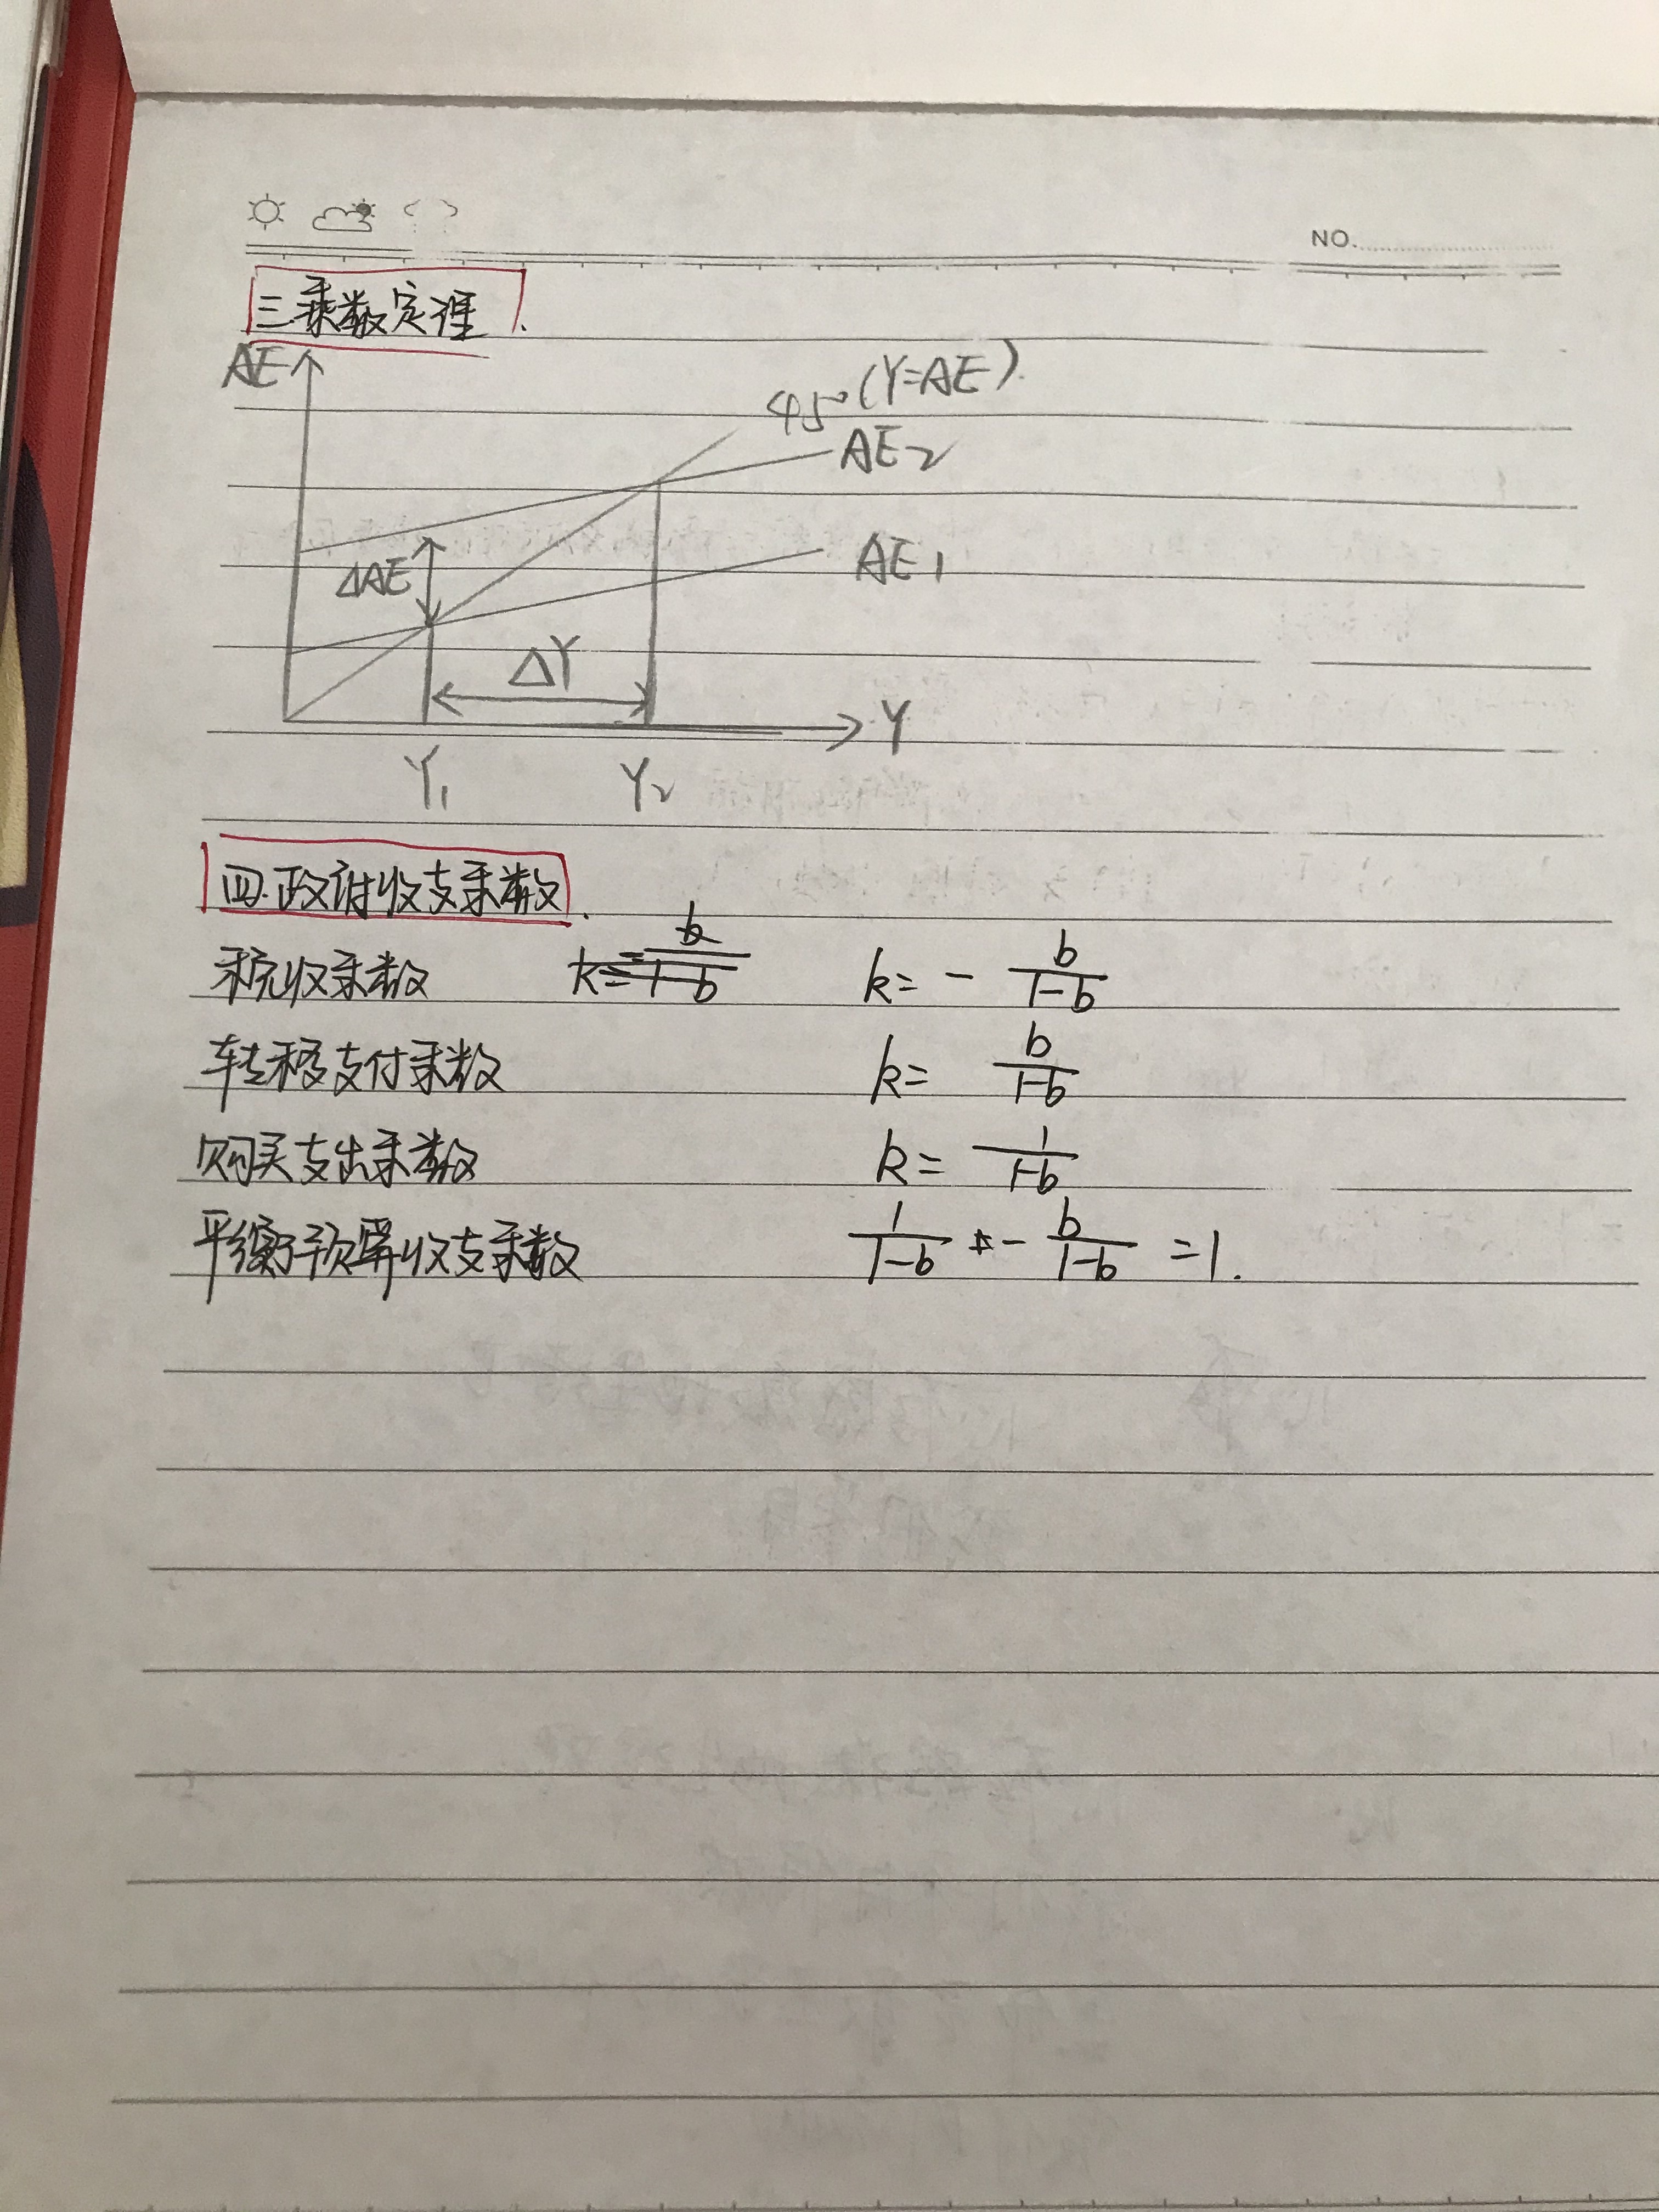 NO.
三乘数定理.
AE
45° (Y=AE).
AE2
AE1
ΔAE
ΔY
Y
Y1 Y2
四.政府收支乘数.
税收乘数 k=b/(1-b) k= - b/(1-b)
转移支付乘数 k= b/(1-b)
购买支出乘数 k= 1/(1-b)
平衡预算收支乘数 1/(1-b) - b/(1-b) =1.